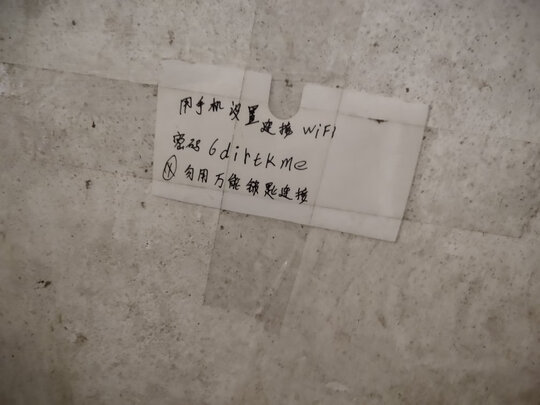 用手机设置连接 WiFi
密码 6dirtkme
勿用万能钥匙连接